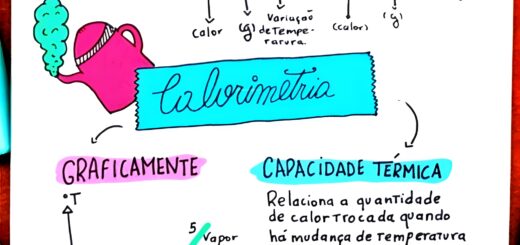 Variação
calor (g) de Tempe- (calor) (g)
ratura.
Calorimetria
GRAFICAMENTE
CAPACIDADE TÉRMICA
°T
Relaciona a quantidade
de calor trocada quando
há mudança de temperatura
5
Vapor